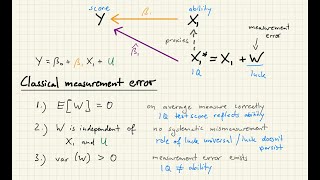 score
ability
Y
β₁
X₁
measurement error
β̂₁
proxies
X₁* = X₁ + W
IQ
luck
Y = β₀ + β₁ X₁ + U
Classical measurement error
1.) E[W] = 0
on average measure correctly
IQ test score reflects ability
2.) W is independent of X₁ and U
no systematic mismeasurement
role of luck universal / luck doesn't persist
3.) var(W) > 0
measurement error exists
IQ ≠ ability